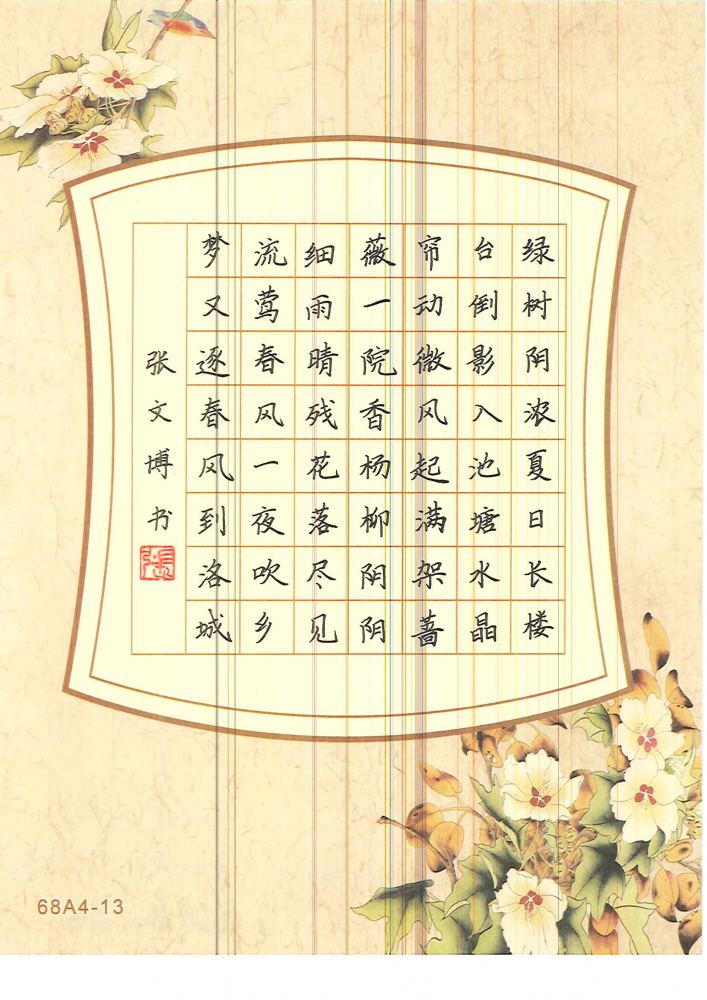 绿树阴浓夏日长楼
台倒影入池塘水晶
帘动微风起满架蔷
薇一院香杨柳阴阴
细雨晴残花落尽见
流莺春风一夜吹乡
梦又逐春风到洛城
张文博书
張
68A4-13